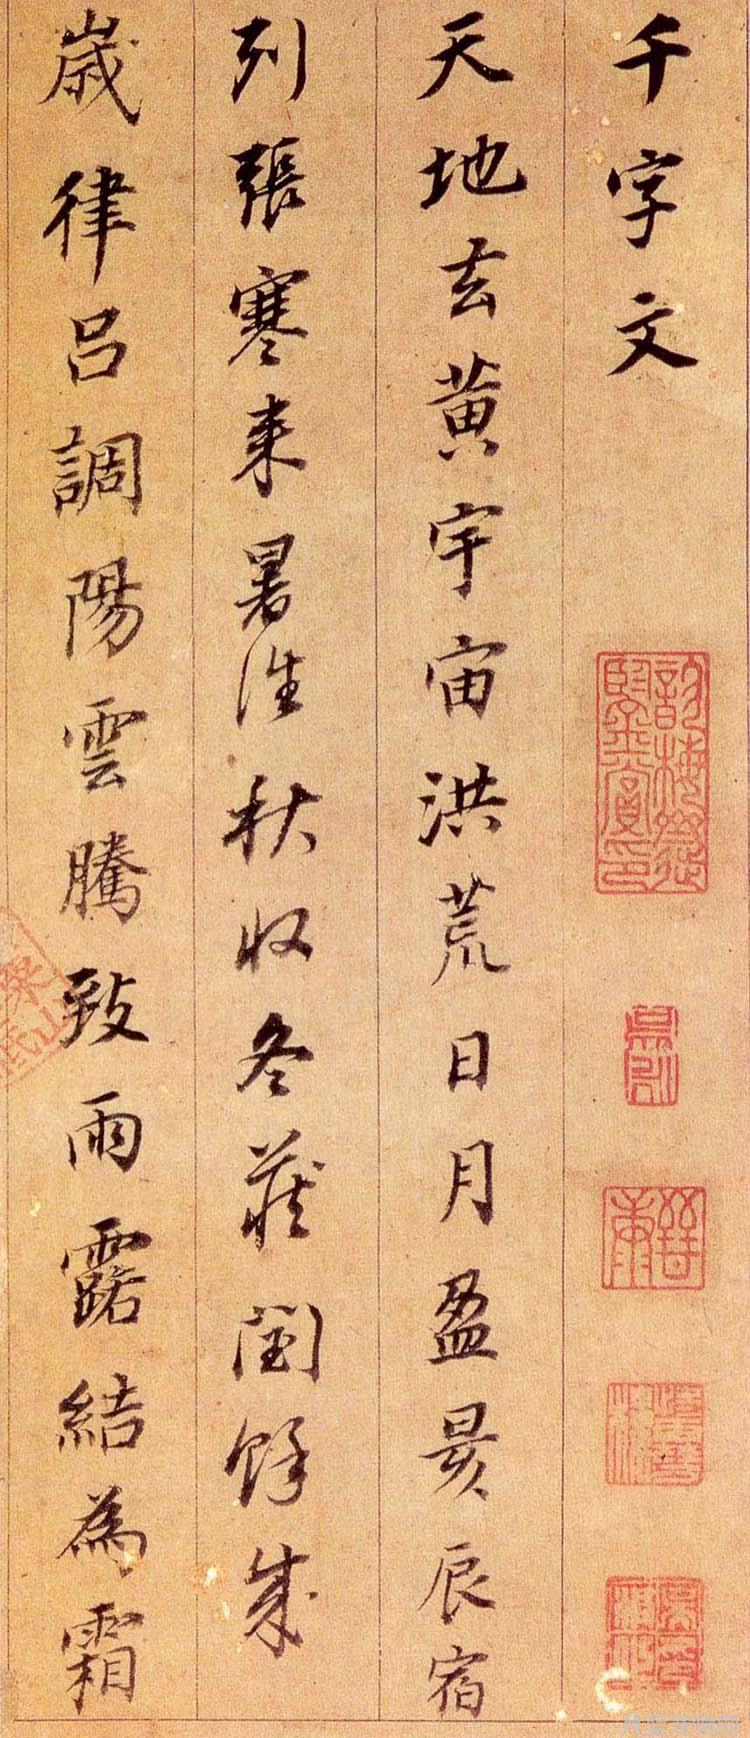 千字文
天地玄黄宇宙洪荒日月盈昃辰宿
列張寒來暑往秋收冬藏閏餘成
歲律吕調陽雲騰致雨露結為霜